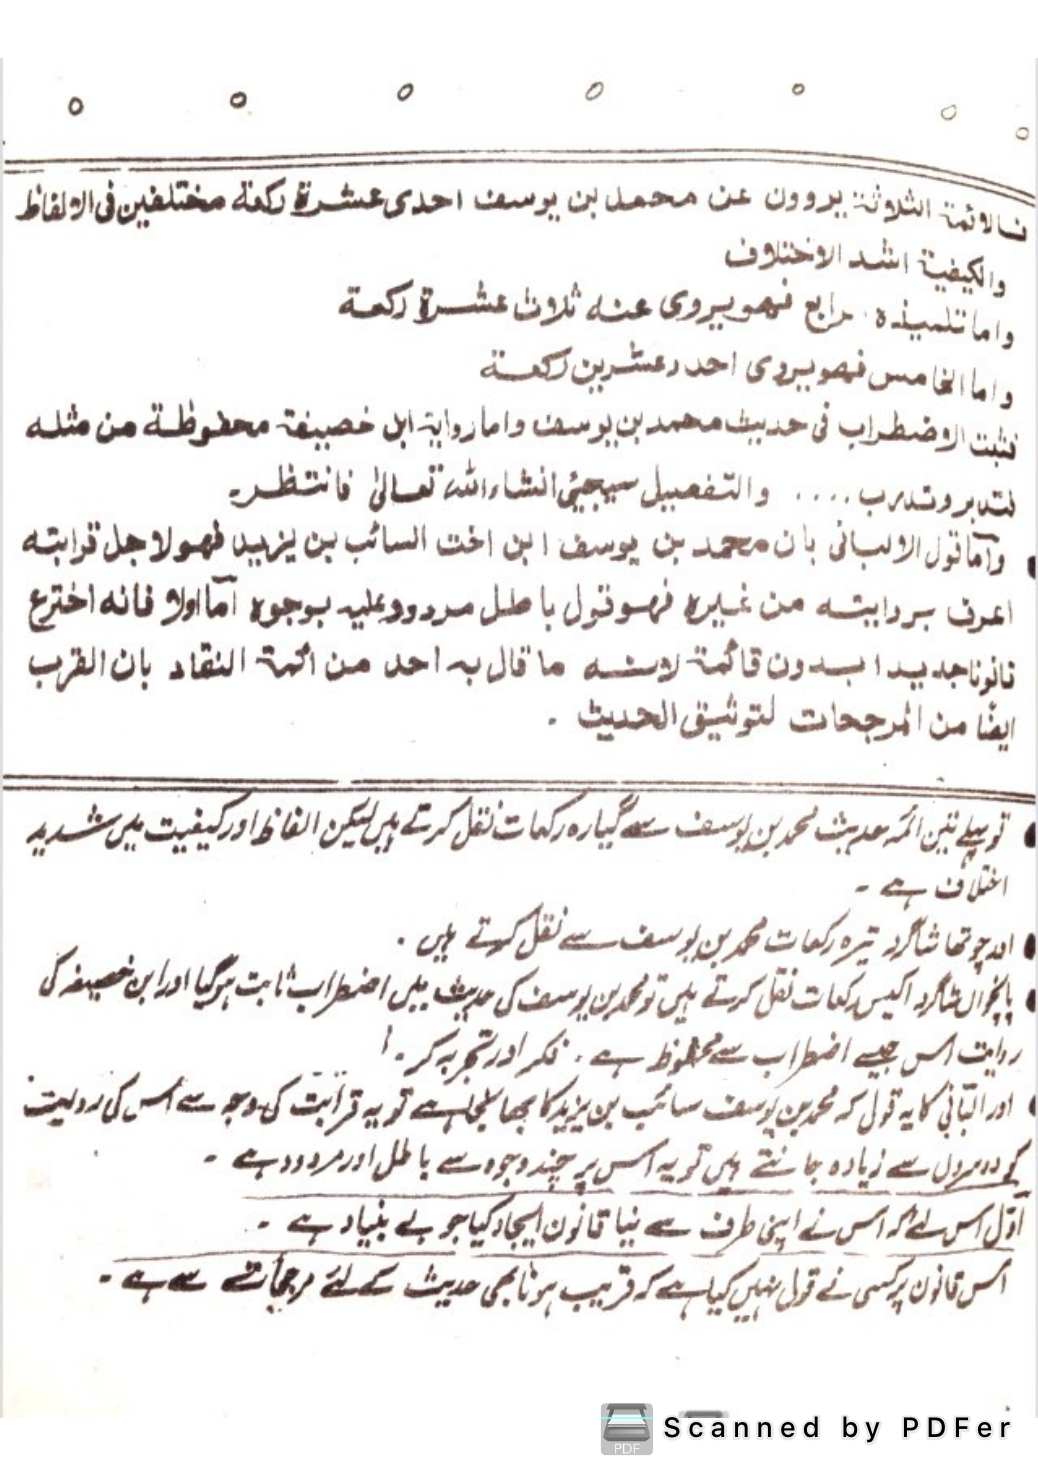 فالائمة الثلاثة يروون عن محمد بن يوسف احدى عشرة ركعة مختلفين فى الالفاظ
والكيفية اشد الاختلاف
واما تلميذه رابع فهو يروى عنه ثلاث عشرة ركعة
واما الخامس فهو يروى احد وعشرين ركعة
فثبت الاضطراب فى حديث محمد بن يوسف واما رواية ابن خصيفة محفوظة من مثله
فتدبر وتدرب .... والتفصيل سيجيئ انشاء الله تعالىٰ فانتظر۔
وأما قول الالبانى بان محمد بن يوسف ابن اخت السائب بن يزيد فهو لاجل قرابته
اعرف بروايته من غيره فهو قول باطل مردود عليه بوجوه أما اولا فانه اخترع
قانونا جديدا بدون قائمة لانه ما قال به احد من ائمة النقاد بان القرب
ايضًا من المرجحات لتوثيق الحديث ۔
تو پہلے تین ائمہ حدیث محمد بن یوسف سے گیارہ رکعات نقل کرتے ہیں لیکن الفاظ اور کیفیت میں شدید
اختلاف ہے ۔
اور چوتھا شاگرد تیرہ رکعات محمد بن یوسف سے نقل کرتے ہیں ۔
پانچواں شاگرد اکیس رکعات نقل کرتے ہیں تو محمد بن یوسف کی حدیث میں اضطراب ثابت ہوگیا اور ابن خصیفہ کی
روایت اس جیسے اضطراب سے محفوظ ہے ۔ فکر اور تجربہ کر ۔!
اور البانی کا یہ قول کہ محمد بن یوسف سائب بن یزید کا بھانجا ہے تو یہ قرابت کی وجہ سے اس کی روایت
کو دوسروں سے زیادہ جانتے ہیں تو یہ اس پر چند وجوہ سے باطل اور مردود ہے ۔
اوّل اس لئے کہ اس نے اپنی طرف سے نیا قانون ایجاد کیا جو بے بنیاد ہے ۔
اس قانون پر کسی نے قول نہیں کیا ہے کہ قریب ہونا بھی حدیث کے لئے مرجحات سے ہے ۔
Scanned by PDFer
PDF